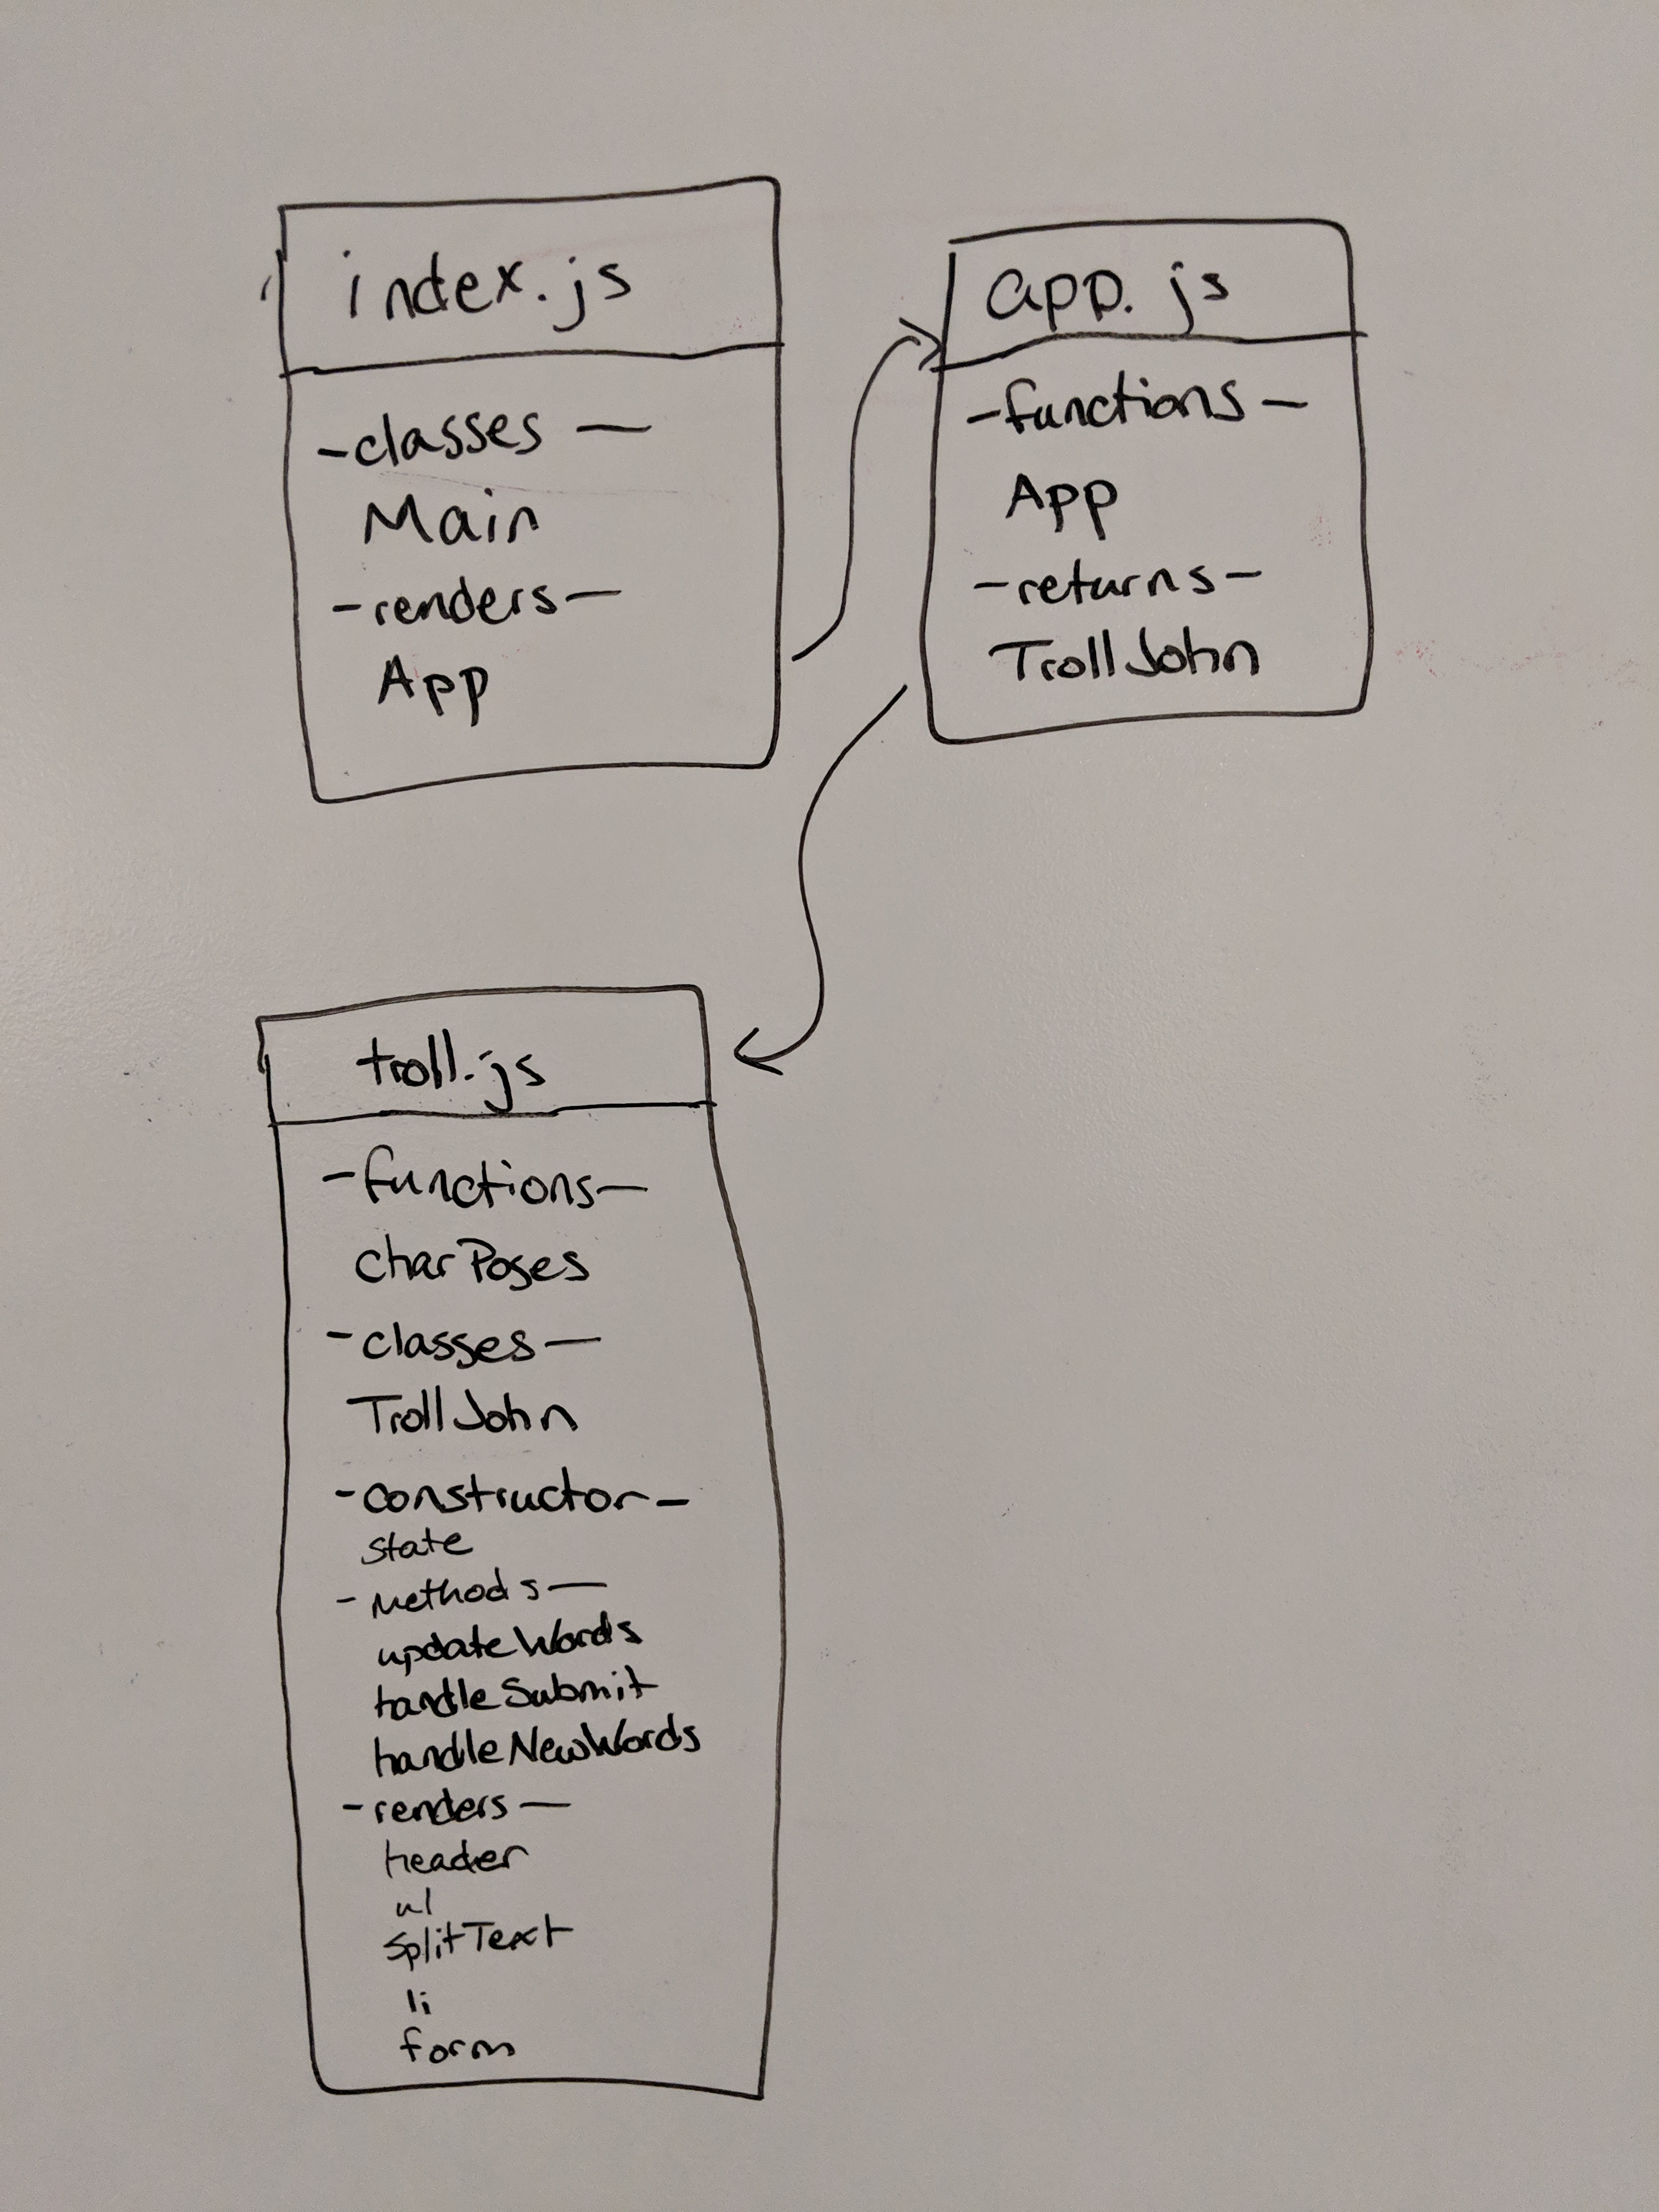 index.js
-classes-
Main
-renders-
App
app.js
-functions-
App
-returns-
TrollJohn
troll.js
-functions-
charPoses
-classes-
TrollJohn
-constructor-
state
-methods-
updateWords
handleSubmit
handleNewWords
-renders-
header
ul
splitText
li
form